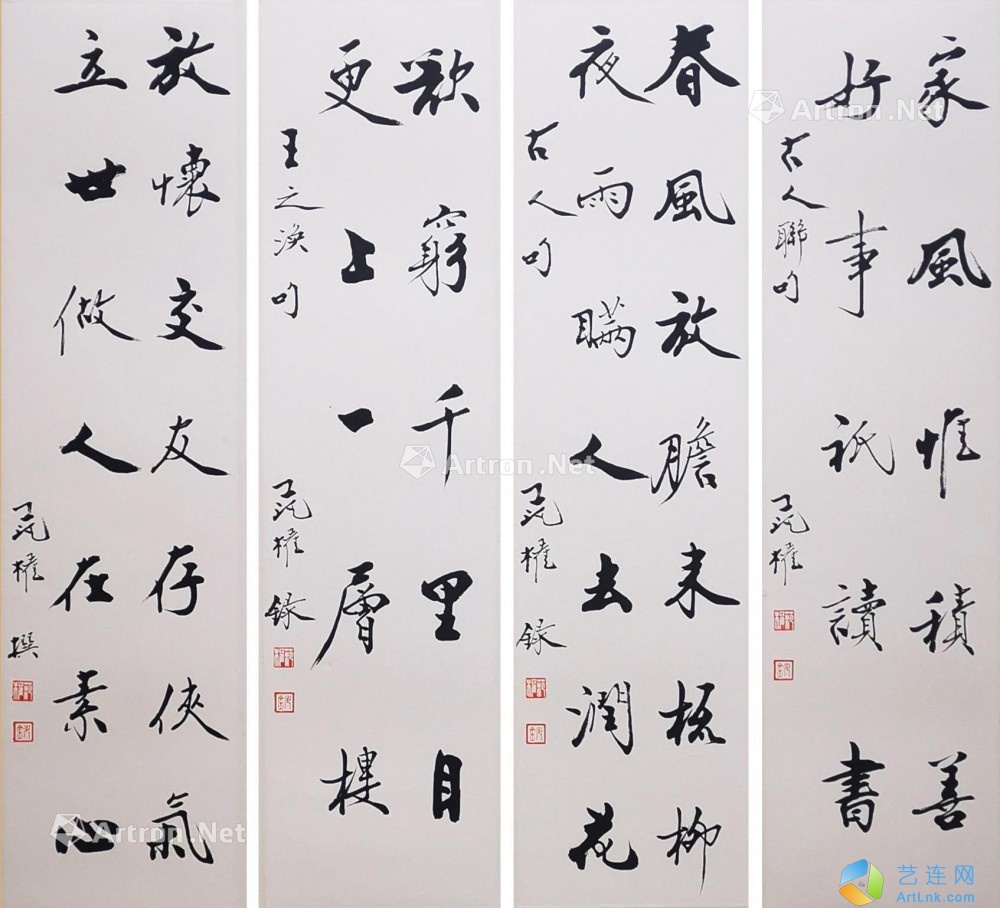 家風惟積善
好事祇讀書
古人聯句
春風放膽来梳柳
夜雨瞞人去潤花
古人句
录
欲窮千里目
更上一層樓
王之涣句
录
放懷交友存俠氣
立世做人在素心
撰
Artron.Net
Artron.Net
Artron.Net
Artron.Net
艺连网
ArtLnk.com